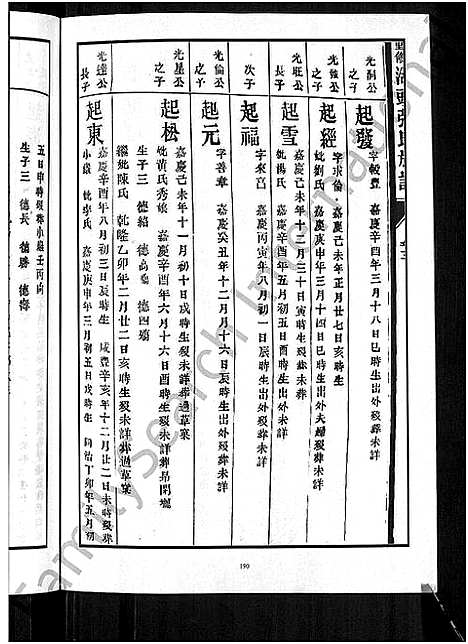 光嗣公
之子
起發
字毅豊 嘉慶辛酉年三月十八日巳時生出外歿葬未詳
光強公
之子
起經
字求倫 嘉慶己未年正月廿七日亥時生
妣劉氏 嘉慶庚申年三月十四日巳時生出外夫婦歿葬未詳
光旺公
長子
起雪
嘉慶己未年十二月三十日寅時生歿葬未詳
妣楊氏 嘉慶辛酉年五月初五日酉時生出外歿葬未詳
次子
起福
嘉慶丙寅年八月初一日辰時生出外歿葬未詳
光倫公
之子
起元
字善章 嘉慶癸丑年十二月十六日辰時生出外歿葬未詳
光星公
之子
起松
嘉慶己未年十一月初十日戌時生歿未詳葬過草窠
妣黃氏秀娘 嘉慶辛酉年六月十六日酉時生歿未詳葬
生子三 德緒 德高 德四
繼妣陳氏 乾隆乙卯年二月廿二日亥時生歿未詳葬過草窠
光達公
長子
起東
嘉慶辛酉年八月初三日辰時生 咸豐辛亥年十二月廿二日未時歿葬
小嶺 妣李氏 嘉慶庚申年三月初五日戌時生 同治丁卯年五月初
五日申時歿葬小嶺壬丙向
生子三 德長 德勝 德壽
190
Family Search International